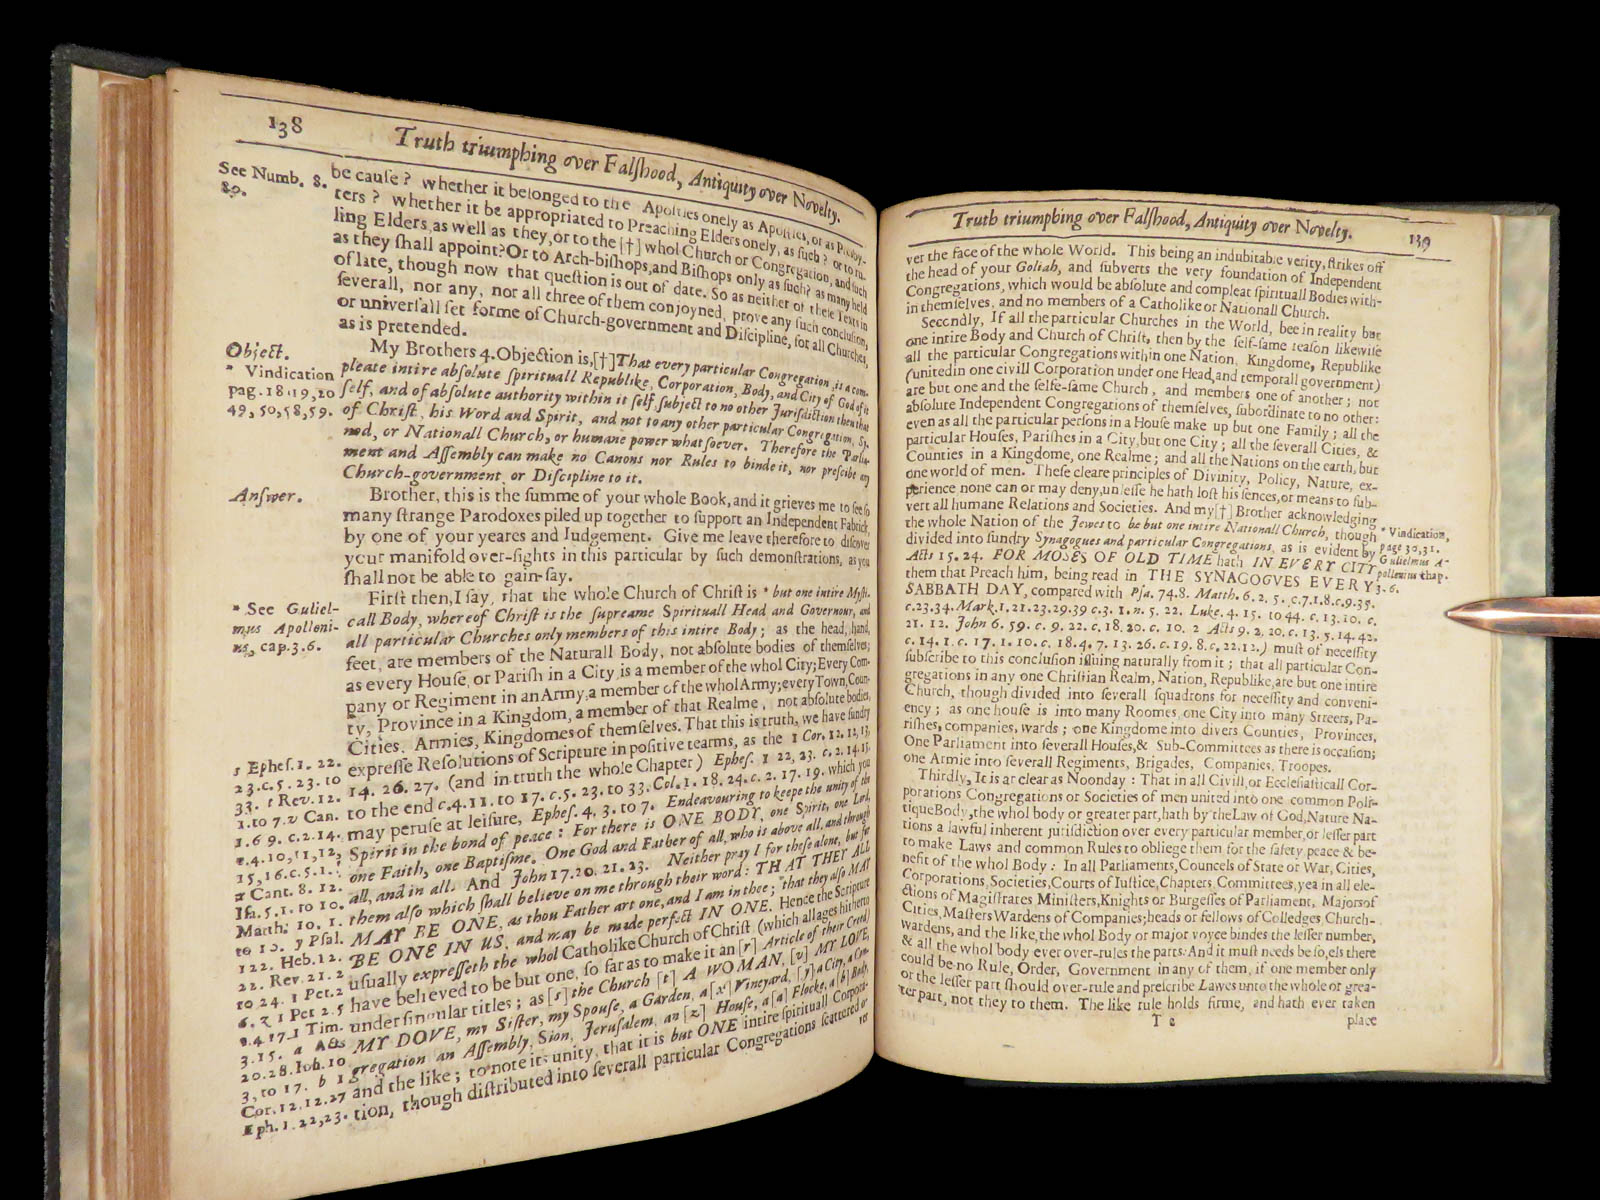 138
Truth triumphing over Falſhood, Antiquity over Novelty.
See Numb. 8.
89.
be cauſe? whether it belonged to the Apoſtles onely as Apoſtles, or as Presby-
ters? whether it be appropriated to Preaching Elders onely, as ſuch? or to ru-
ling Elders as well as they, or to the [†] whol Church or Congregation, and ſuch
as they ſhall appoint? Or to Arch-biſhops, and Biſhops only as ſuch? as many held
of late, though now that queſtion is out of date. So as neither of theſe Texts in
ſeverall, nor any, nor all three of them conjoyned, prove any ſuch concluſion,
or univerſall ſet forme of Church-government and Diſcipline, for all Churches,
as is pretended.
Object.
* Vindication
pag. 18.19,20
49,50,58,59.
My Brothers 4. Objection is, [†] That every particular Congregation is a com-
pleate intire abſolute ſpirituall Republike, Corporation, Body, and City of God of it
ſelf, and of abſolute authority within it ſelf ſubject to no other Juriſdiction then that
of Chriſt, his Word and Spirit, and not to any other particular Congregation, Sy-
nod, or Nationall Church, or humane power whatſoever. Therefore the Parlia-
ment and Aſſembly can make no Canons nor Rules to binde it, nor preſcibe any
Church-government or Diſcipline to it.
Anſwer.
Brother, this is the ſumme of your whole Book, and it grieves me to ſee ſo
many ſtrange Parodoxes piled up together to ſupport an Independent Fabrick,
by one of your yeares and Iudgement. Give me leave therefore to diſcover
your manifold over-ſights in this particular by ſuch demonſtrations, as you
ſhall not be able to gain-ſay.
* See Guliel-
mus Apolloni-
us, cap. 3.6.
Firſt then, I ſay, that the whole Church of Chriſt is * but one intire Myſti-
call Body, whereof Chriſt is the ſupreame Spirituall Head and Governour, and
all particular Churches only members of this intire Body; as the head, hand,
feet, are members of the Naturall Body, not abſolute bodies of themſelves;
as every Houſe, or Pariſh in a City is a member of the whol City; Every Com-
pany or Regiment in an Army, a member of the whol Army; every Town, Coun-
ty, Province in a Kingdom, a member of that Realme, not abſolute bodies,
Cities, Armies, Kingdomes of themſelves. That this is truth, we have ſundry
expreſſe Reſolutions of Scripture in poſitive tearms, as the 1 Cor. 12. 12, 13,
14. 26. 27. (and in truth the whole Chapter) Epheſ. 1 22, 23. c. 2. 14. 15.
to the end c.4.11. to 17. c. 5. 23. to 33. Col. 1. 18. 24. c. 2. 17. 19. which you
may peruſe at leiſure, Epheſ. 4. 3. to 7. Endeavouring to keepe the unity of the
Spirit in the bond of peace: For there is ONE BODY, one Spirit, one Lord,
one Faith, one Baptiſme. One God and Father of all, who is above all, and through
all, and in all. And John 17.20. 21. 23. Neither pray I for theſe alone, but for
them alſo which ſhall believe on me through their word: THAT THEY ALL
MAY BE ONE, as thou Father art one, and I am in thee; that they alſo MAY
BE ONE IN US, and may be made perfect IN ONE. Hence the Scripture
uſually expreſſeth the whol Catholike Church of Chriſt (which all ages hitherto
have believed to be but one, ſo far as to make it an [r] Article of their Creed)
under ſingular titles; as [s] the Church [t] A WOMAN, [v] MY LOVE,
MY DOVE, my Siſter, my Spouſe, a Garden, a [x] Vineyard, [y] a City, a Con-
gregation an Aſſembly, Sion, Jeruſalem, an [z] Houſe, a [a] Flocke, a [b] Body,
and the like; to note its unity, that it is but ONE intire ſpirituall Corpora-
tion, though diſtributed into ſeverall particular Congregations ſcattered o-
ver
s Epheſ. 1. 22.
23.c.5. 23. to
33. t Rev. 12.
1. to 7. v Can.
1.6 9. c.2.14.
c.4.10,11,12,
15,16.c.5.1.
x Cant. 8. 12.
Iſa. 5. 1. to 10.
Matth. 10. 1.
to 10. y Pſal.
122. Heb. 12.
22. Rev. 21. 2
to 24. 1 Pet. 2
6. z 1 Pet 2.5
c.4 17.1 Tim.
3.15. a Acts
20.28. Ioh. 10
3, to 17. b 1
Cor. 12.12.27
Eph. 1.22,23.
Truth triumphing over Falſhood, Antiquity over Novelty.
139
ver the face of the whole World. This being an indubitable verity, ſtrikes off
the head of your Goliah, and ſubverts the very foundation of Independent
Congregations, which would be abſolute and compleat ſpirituall Bodies with-
in themſelves, and no members of a Catholike or Nationall Church.
Secondly, If all the particular Churches in the World, bee in reality but
one intire Body and Church of Chriſt, then by the ſelf-ſame reaſon likewiſe
all the particular Congregations within one Nation, Kingdome, Republike
(united in one civill Corporation under one Head, and temporall government)
are but one and the ſelfe-ſame Church, and members one of another; not
abſolute Independent Congregations of themſelves, ſubordinate to no other:
even as all the particular perſons in a Houſe make up but one Family; all the
particular Houſes, Pariſhes in a City, but one City; all the ſeverall Cities, &
Counties in a Kingdome, one Realme; and all the Nations on the earth, but
one world of men. Theſe cleare principles of Divinity, Policy, Nature, ex-
perience none can or may deny, unleſſe he hath loſt his ſences, or means to ſub-
vert all humane Relations and Societies. And my [†] Brother acknowledging
the whole Nation of the Jewes to be but one intire Nationall Church, though
divided into ſundry Synagogues and particular Congregations, as is evident by
Acts 15. 24. FOR MOSES OF OLD TIME hath IN EVERY CITY
them that Preach him, being read in THE SYNAGOGVES EVERY
SABBATH DAY, compared with Pſa. 74.8. Matth. 6. 2. 5. c.7.1.8. c.9.35.
c.23.34. Mark. 1. 21.23.29.39 c.3. 1. n. 5. 22. Luke. 4. 15. to 44. c. 13.10. c.
21. 12. John 6. 59. c. 9. 22. c. 18. 20. c. 10. 2 Acts 9. 2, 20. c. 13. 5. 14. 42.
c. 14. 1. c. 17. 1. 10. c. 18. 4. 7. 13. 26. c. 19. 8. c. 22.12.) muſt of neceſſity
ſubſcribe to this concluſion iſſuing naturally from it; that all particular Con-
gregations in any one Chriſtian Realm, Nation, Republike, are but one intire
Church, though divided into ſeverall ſquadrons for neceſſity and conveni-
ency; as one houſe is into many Roomes, one City into many Streets, Pa-
riſhes, companies, wards; one Kingdome into divers Counties, Provinces,
One Parliament into ſeverall Houſes, & Sub-Committees as there is occaſion;
one Armie into ſeverall Regiments, Brigades, Companies, Troopes.
* Vindication,
page 30,31.
Gulielmus A-
pollonius chap.
3.6.
Thirdly, It is as clear as Noonday: That in all Civill, or Eccleſiaſticall Cor-
porations Congregations or Societies of men united into one common Poli-
tique Body, the whol body or greater part, hath by the Law of God, Nature Na-
tions a lawful inherent juriſdiction over every particular member, or leſſer part
to make Laws and common Rules to obliege them for the ſafety, peace & be-
nefit of the whol Body: In all Parliaments, Councels of State or War, Cities,
Corporations, Societies, Courts of Iuſtice, Chapters, Committees, yea in all ele-
ctions of Magiſtrates Miniſters, Knights or Burgeſſes of Parliament, Majors of
Cities, Maſters Wardens of Companies; heads or fellows of Colledges, Church-
wardens, and the like, the whol Body or major voyce bindes the leſſer number,
& all the whol body ever over-rules the parts: And it muſt needs be ſo, els there
could be no Rule, Order, Government in any of them, if one member only
or the leſſer part ſhould over-rule and preſcribe Lawes unto the whole or grea-
ter part, not they to them. The like rule holds firme, and hath ever taken
T 2
place